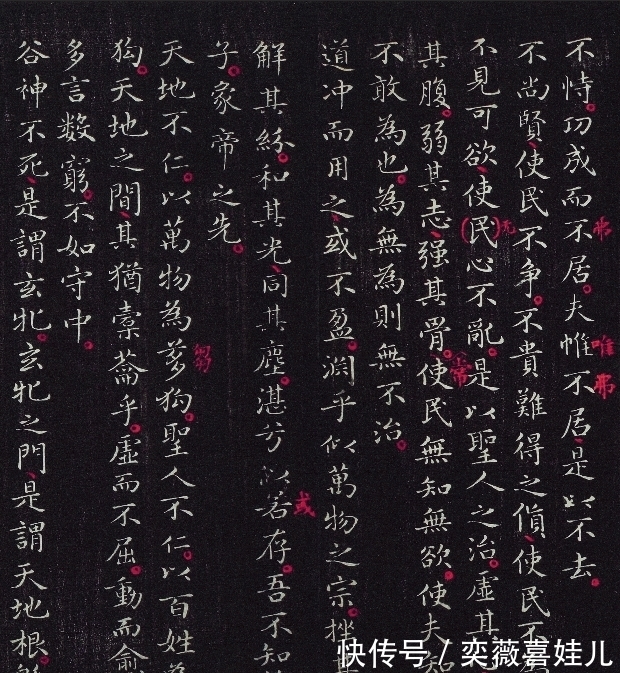 不恃功成而不居夫惟不居是以不去
不尚賢使民不争不貴難得之貨使民不為
不見可欲使(民)心不亂是以聖人之治虛其
其腹弱其志强其骨使民無知無欲使夫知
不敢為也為無為則無不治
道冲而用之或不盈淵乎似萬物之宗挫其
解其紛和其光同其塵湛兮似若存吾不知
子象帝之先
天地不仁以萬物為芻狗聖人不仁以百姓為
狗天地之間其猶橐籥乎虛而不屈動而愈
多言數窮不如守中
谷神不死是謂玄牝玄牝之門是謂天地根
弗
唯弗
无
常
或
芻
快传号/奕薇喜娃儿